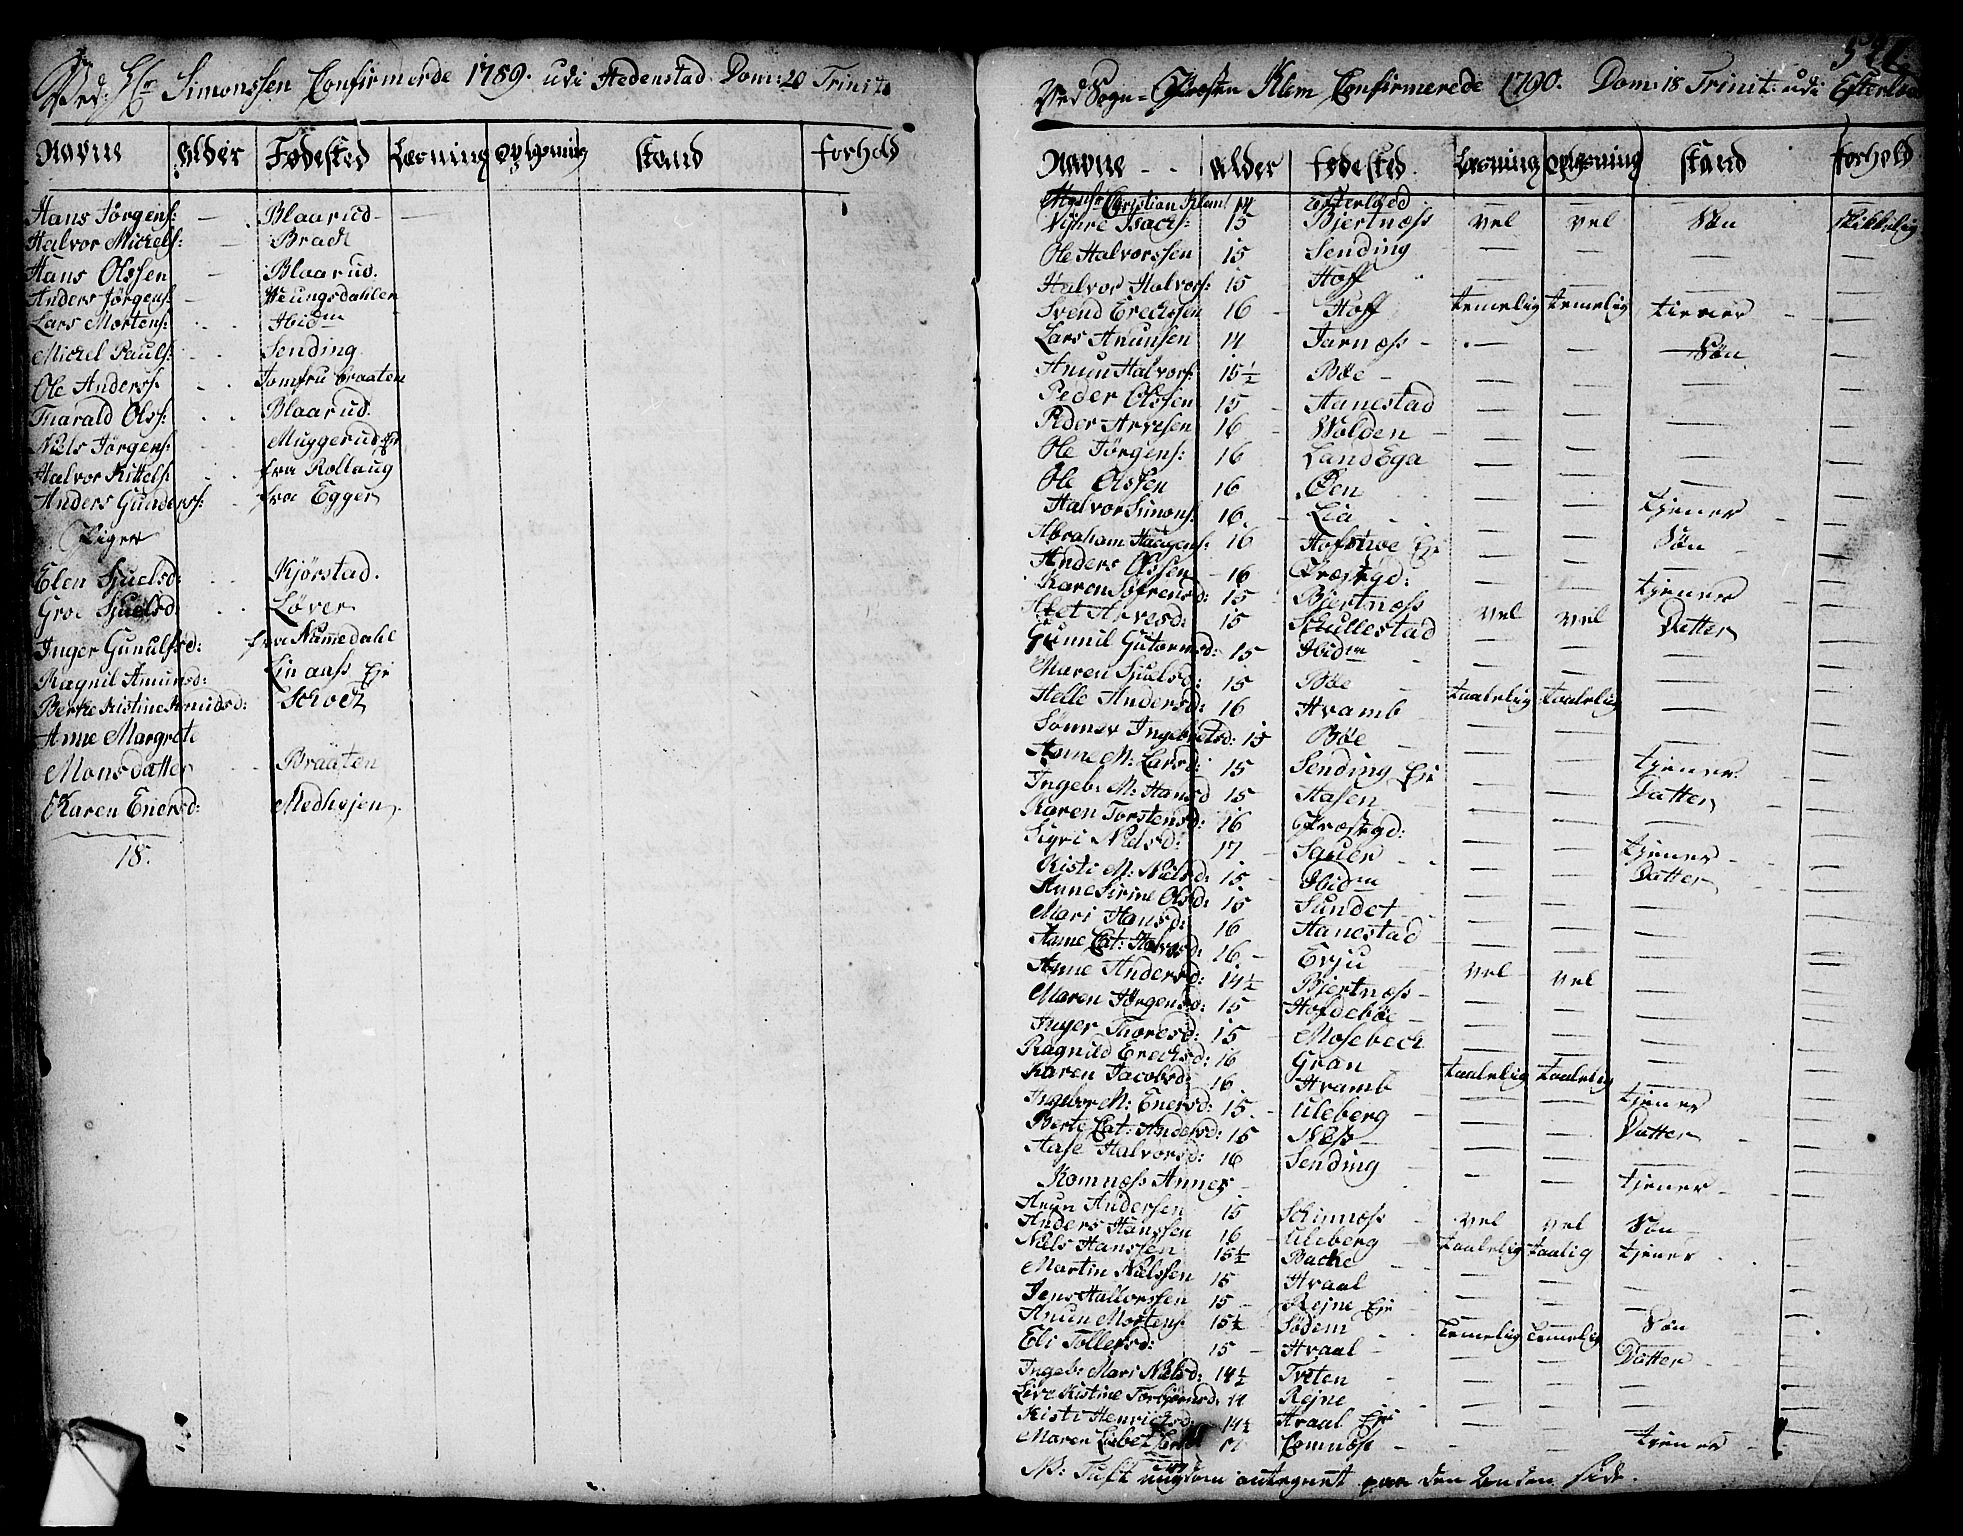 Ved Hr Simonssen Confirmerde 1789. udi Hedenstad Dom: 20 Trinit:
Navne Alder Fødested Læsning Oplysning stand forhold
Hans Jørgens: — Blaarud —
Halvor Michels: — Brack
Hans Olssen — Blaarud.
Anders Jørgens: — Weungsdahlen
Lars Mortens: Ibidm
Michel Pauls: Sending
Ole Anders: Jomfru braaten
Tharald Olss: Blaarud.
Niels Jørgens: Muggerud Eje
Halvor Kittels: fra Rollaug
Anders Gunders: fra Egger
Piger
Elen Sjuelsd: Kjørstad.
Groe Sjuelsd Løver
Inger Gunulfsd: fra Numedahl
Ragnil Amunsd: Lin aass Eje
Berthe Kistine Knudsd: Schoch
Anne Margrete
Monsdatter Braaten
Karen Enersd: Medhejen
18.
Ved Sogne-Præsten Klem Confirmerede 1790. Dom: 18 Trinit: udi Efterløed
Navne alder fødested Læsning Oplysning stand forhold
Christian Klem 14 Efterløed — — — —
Isachs: 15 Bjertnæss vel vel Søn skikkelig
Ole Halvorssen 15 Sending — — — —
Halvor Halvors: 15 Hoff — — — —
Svend Erechssen 16 Hoff temelig temelig tiener —
Lars Anunsen 14 Jarnæss — — Søn —
Anun Halvors: 15½ Bøe — — — —
Peder Olssen 15 Aanestad — — — —
Peder Arvesen 16 Wolden — — — —
Ole Jørgens: 16 Landega — — — —
Ole Olssen 16 Øen — — — —
Halvor Simons: 16. Lia — — tjener —
Abraham Haagens: 16 Hofstvoe Eje — — Søn —
Anders Olssen 16 Præstgd: — — tjener —
Karen Søfrensd: 15 Bjertnæss vel vel Datter —
Abet Arvesd: 15 Skullestad — — — —
Gunnil Gutormsd: 15 Ibidm — — — —
Maren Sjuelsd: 15 Bøe taalelig taalelig — —
Helle Andersd: 16 Hvamb — — — —
Sønnev Ingebretsd: 15 Bøe — — — —
Anne M: Larsd: 15 Sending Eje — — tjener —
Ingeb: M: Hansd 15 Hasen — — Datter —
Karen Torstensd: 16 Præstgd: — — — —
Sigri Nielsd: 17 Sauer — — tjener —
Kisti M: Nielsd: 15 Ibidm — — Datter —
Anne Sirine Olsd: 15 Sundet — — — —
Mari Hansd: 16 Aanestad — — — —
Anne Cat: Halvorsd: 16. Evju — — — —
Anne Andersd: 14½ Bjertnæss vel vel — —
Maren Jørgensd: 15 Hofdebøe — — — —
Inger Thoresd: 15 Mosebech — — — —
Ragnild Erechsd: 16 Gran taalelig taalelig — —
Karen Jacobsd: 16 Hvamb — — tjener —
Ingebor M: Enersd: 15. Uleberg — — — —
Berte Cat: Andersd: 15 Næss — — Datter —
Aase Halvorsd: 16 Sending — — tjener —
Komnæss Annex
Anun Andersen 15 Skinnæss vel vel Søn —
Anders Hanssen 16 Uleberg taalelig taalig tjener —
Niels Hanssen 15½ Bache — — — —
Martin Nielssen 15 Hvaal — — — —
Jens Hallvorssen 15 Rejne Eje — — — —
Anun Mortens: 15½ Sødem temelig temelig Søn —
Eli Tollefsd: 15 Hvaal — — Datter —
Ingeb: Mari Nielsd: 14½ Tveten — — — —
Live Kistine Torbjørnsd: 14 Rejne — — — —
Kisti Henrichsd: 14½ Hvaal Eje — — — —
Maren Lisbet 17 Komnæss — — tjener —
NB: Tuft ungdom antegnet paa den anden side.